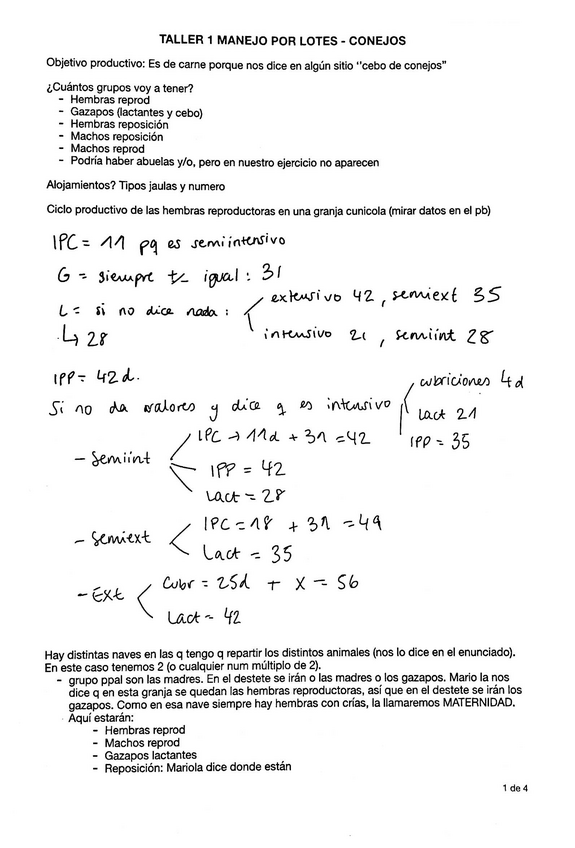 TALLER 1 MANEJO POR LOTES - CONEJOS
Objetivo productivo: Es de carne porque nos dice en algún sitio ''cebo de conejos"
¿Cuántos grupos voy a tener?
- Hembras reprod
- Gazapos (lactantes y cebo)
- Hembras reposición
- Machos reposición
- Machos reprod
- Podría haber abuelas y/o, pero en nuestro ejercicio no aparecen
Alojamientos? Tipos jaulas y numero
Ciclo productivo de las hembras reproductoras en una granja cunicola (mirar datos en el pb)
IPC = 11 pq es semiintensivo
G = siempre +/- igual : 31
L = si no dice nada : extensivo 42, semiext 35
↳ 28 intensivo 21, semiint 28
IPP = 42 d.
Si no da valores y dice q es intensivo cubriciones 4d
Lact 21
IPP = 35
- Semiint IPC → 11d + 31 = 42
IPP = 42
Lact = 28
- Semiext IPC = 18 + 31 = 49
Lact = 35
- Ext Cubr = 25d + X = 56
Lact = 42
Hay distintas naves en las q tengo q repartir los distintos animales (nos lo dice en el enunciado).
En este caso tenemos 2 (o cualquier num múltiplo de 2).
- grupo ppal son las madres. En el destete se irán o las madres o los gazapos. Mario la nos
dice q en esta granja se quedan las hembras reproductoras, así que en el destete se irán los
gazapos. Como en esa nave siempre hay hembras con crías, la llamaremos MATERNIDAD.
Aquí estarán:
- Hembras reprod
- Machos reprod
- Gazapos lactantes
- Reposición: Mariola dice donde están
1 de 4